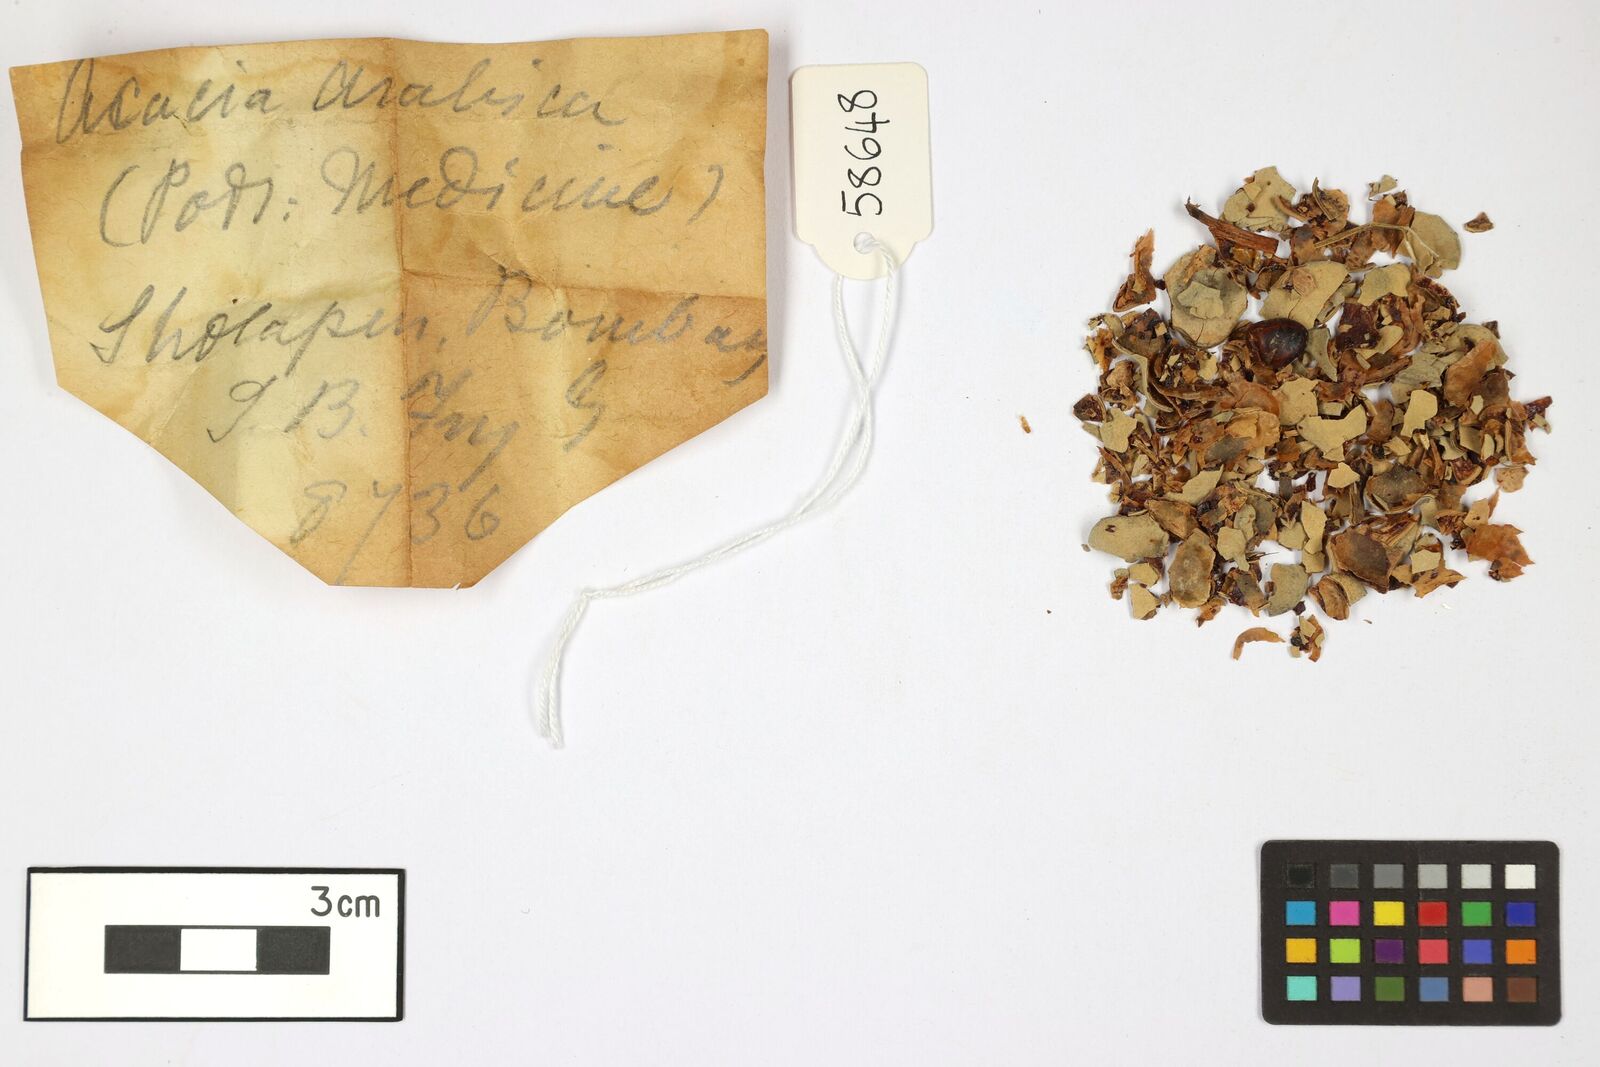 Acacia arabica
(Pods: Medicine)
Sholapur, Bombay
8736
58648
3cm